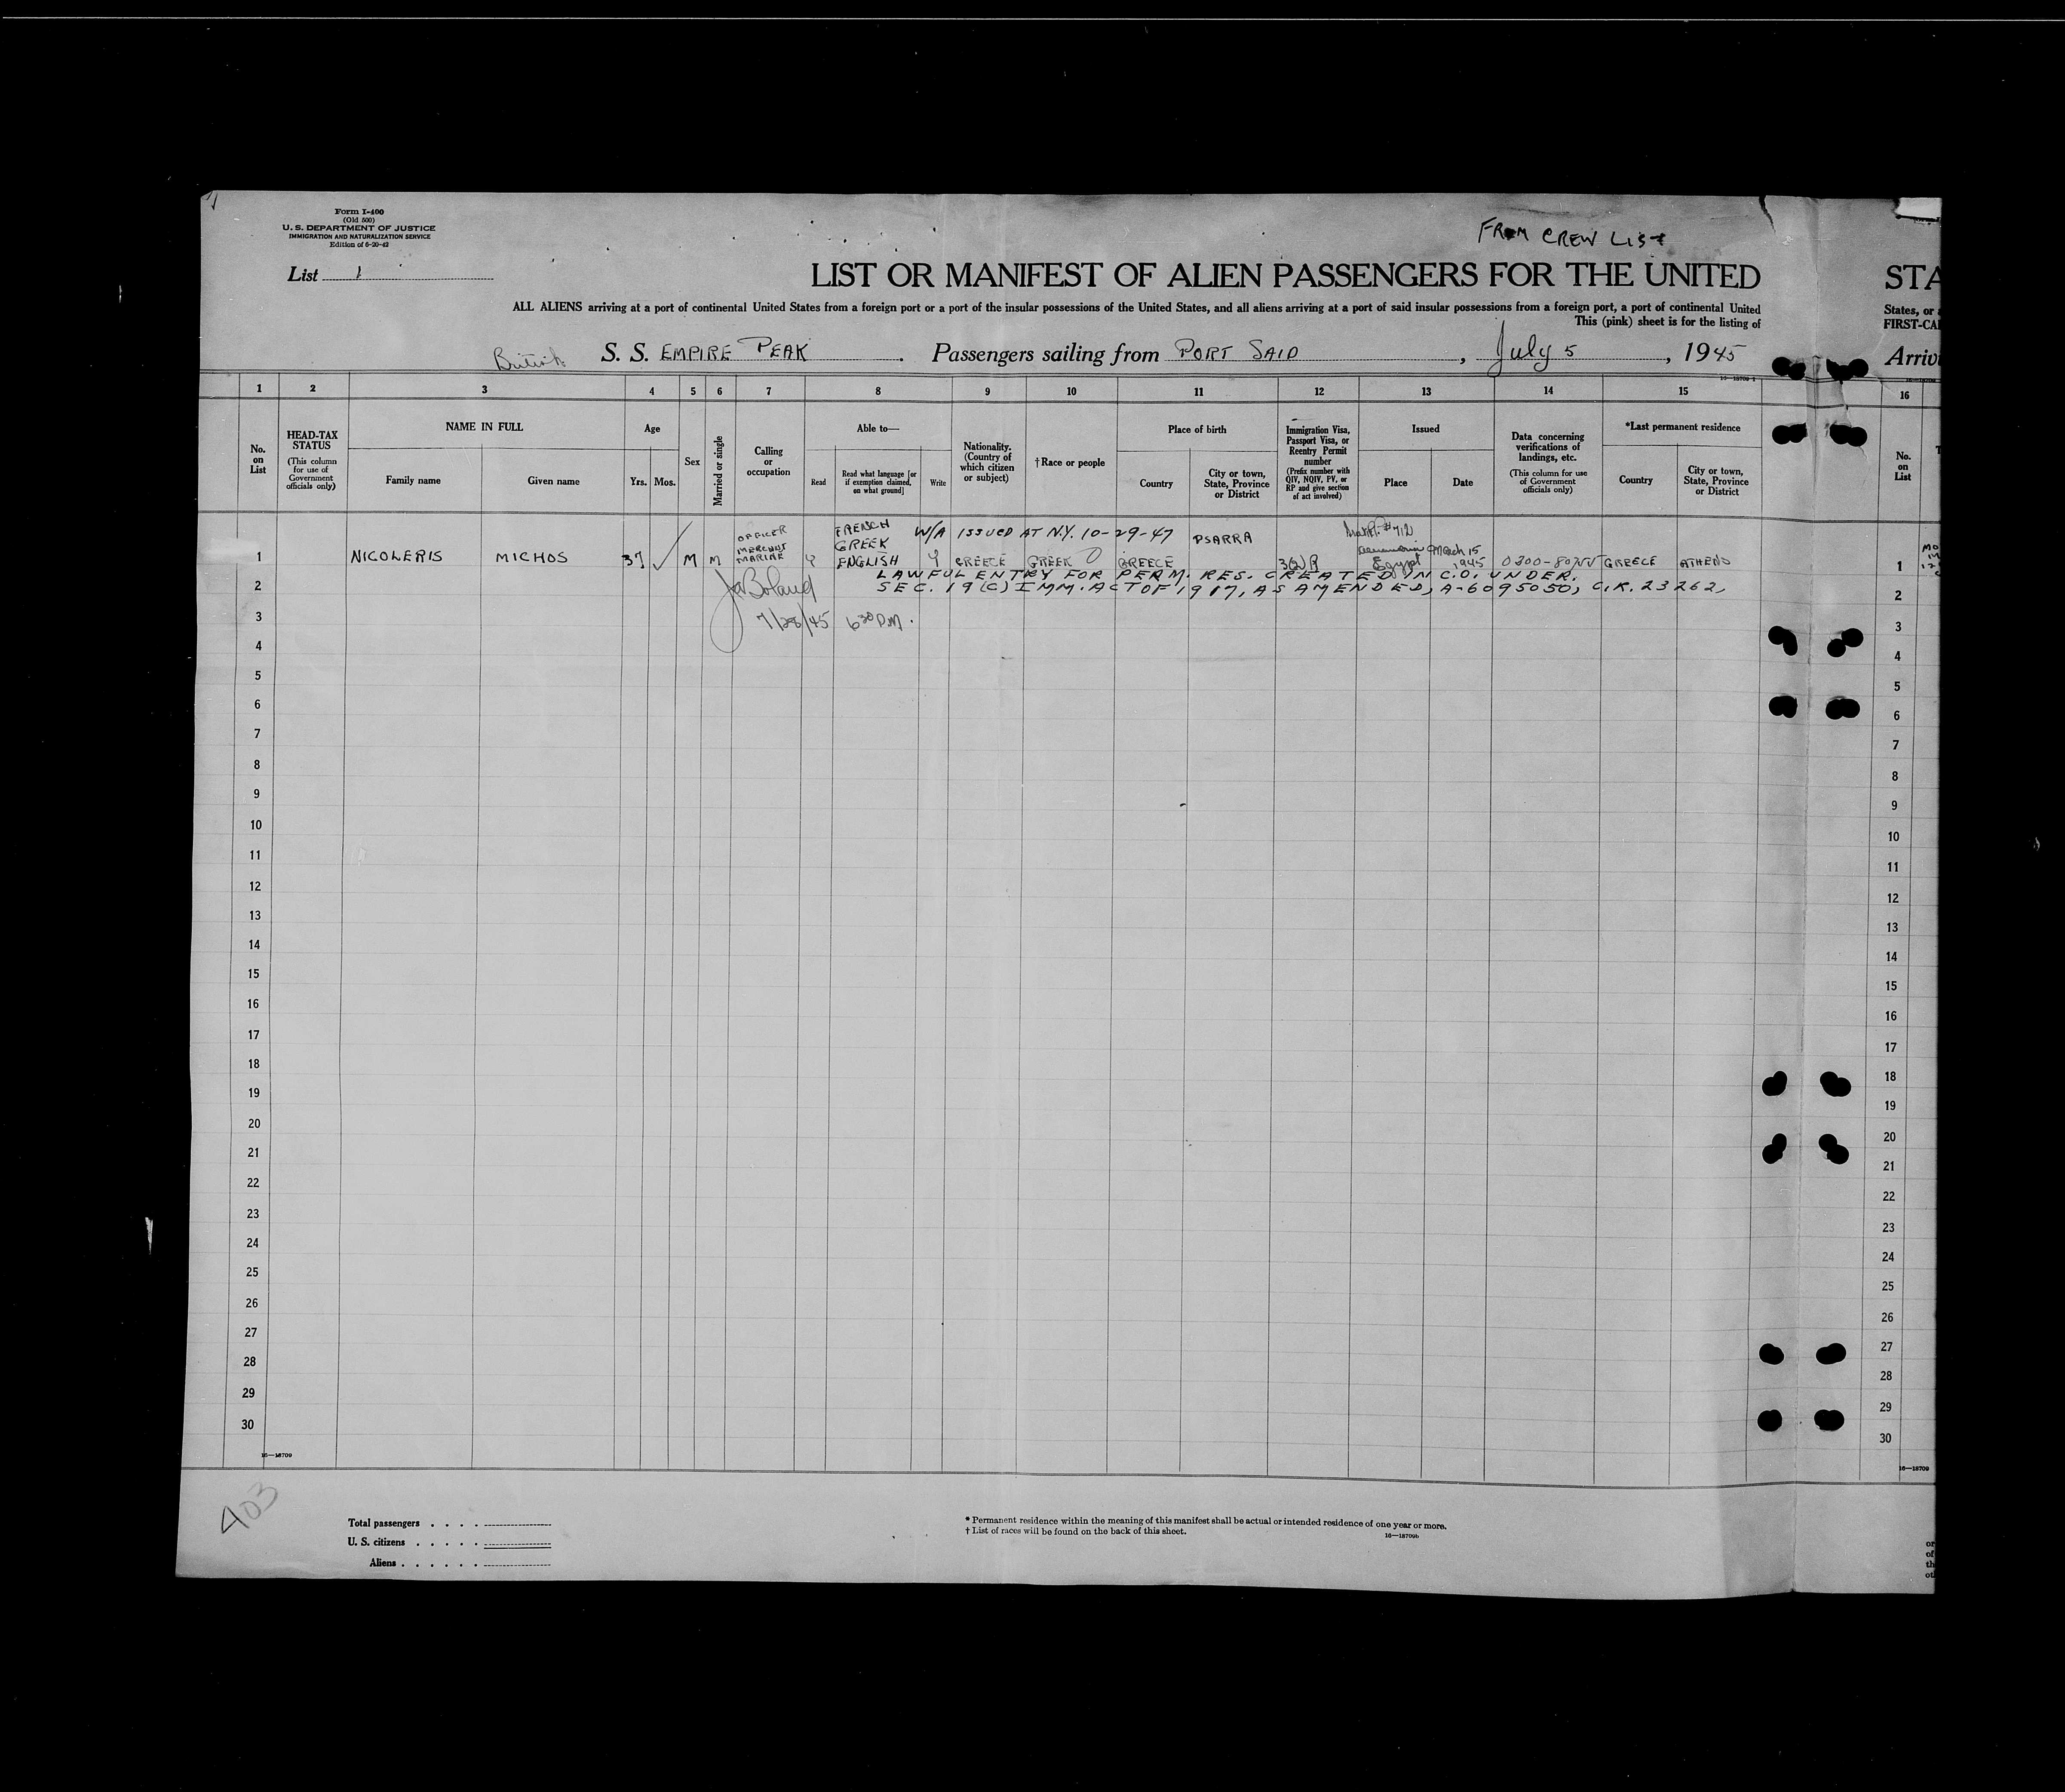 Form I-400
(Old 500)
U. S. DEPARTMENT OF JUSTICE
IMMIGRATION AND NATURALIZATION SERVICE
Edition of 6-20-42
FROM CREW LIST
List 1
LIST OR MANIFEST OF ALIEN PASSENGERS FOR THE UNITED
STA
ALL ALIENS arriving at a port of continental United States from a foreign port or a port of the insular possessions of the United States, and all aliens arriving at a port of said insular possessions from a foreign port, a port of continental United
States, or
This (pink) sheet is for the listing of
FIRST-CA
British S. S. EMPIRE PEAK . Passengers sailing from PORT SAID , July 5 , 1945
Arriv
1 2 3 4 5 6 7 8 9 10 11 12 13 14 15 16
No. on List
HEAD-TAX STATUS (This column for use of Government officials only)
NAME IN FULL
Family name Given name
Age
Yrs. Mos.
Sex
Married or single
Calling or occupation
Able to—
Read Read what language [or if exemption claimed, on what ground] Write
Nationality. (Country of which citizen or subject)
†Race or people
Place of birth
Country City or town, State, Province or District
Immigration Visa, Passport Visa, or Reentry Permit number (Prefix number with QIV, NQIV, PV, or RP and give section of act involved)
Issued
Place Date
Data concerning verifications of landings, etc. (This column for use of Government officials only)
*Last permanent residence
Country City or town, State, Province or District
No. on List
FRENCH W/A ISSUED AT N.Y. 10-29-47
OFFICER MERCHNT MARINE
GREEK PSARRA
1 NICOLERIS MICHOS 37 M M Y ENGLISH Y GREECE GREEK GREECE Egypt March 15 1945 GREECE ATHENS 1
LAWFUL ENTRY FOR PERM. RES. CREATED IN C.O. UNDER.
2 SEC. 19(C) IMM. ACT OF 1917, AS AMENDED, A-6095050, C.R. 23262, 2
3 7/28/45 6 30 P.M. 3
4 4
5 5
6 6
7 7
8 8
9 9
10 10
11 11
12 12
13 13
14 14
15 15
16 16
17 17
18 18
19 19
20 20
21 21
22 22
23 23
24 24
25 25
26 26
27 27
28 28
29 29
30 30
16—18709
16—18709
403
Total passengers . . . .
U. S. citizens . . . . .
Aliens . . . . . .
* Permanent residence within the meaning of this manifest shall be actual or intended residence of one year or more.
† List of races will be found on the back of this sheet.
16—18709b